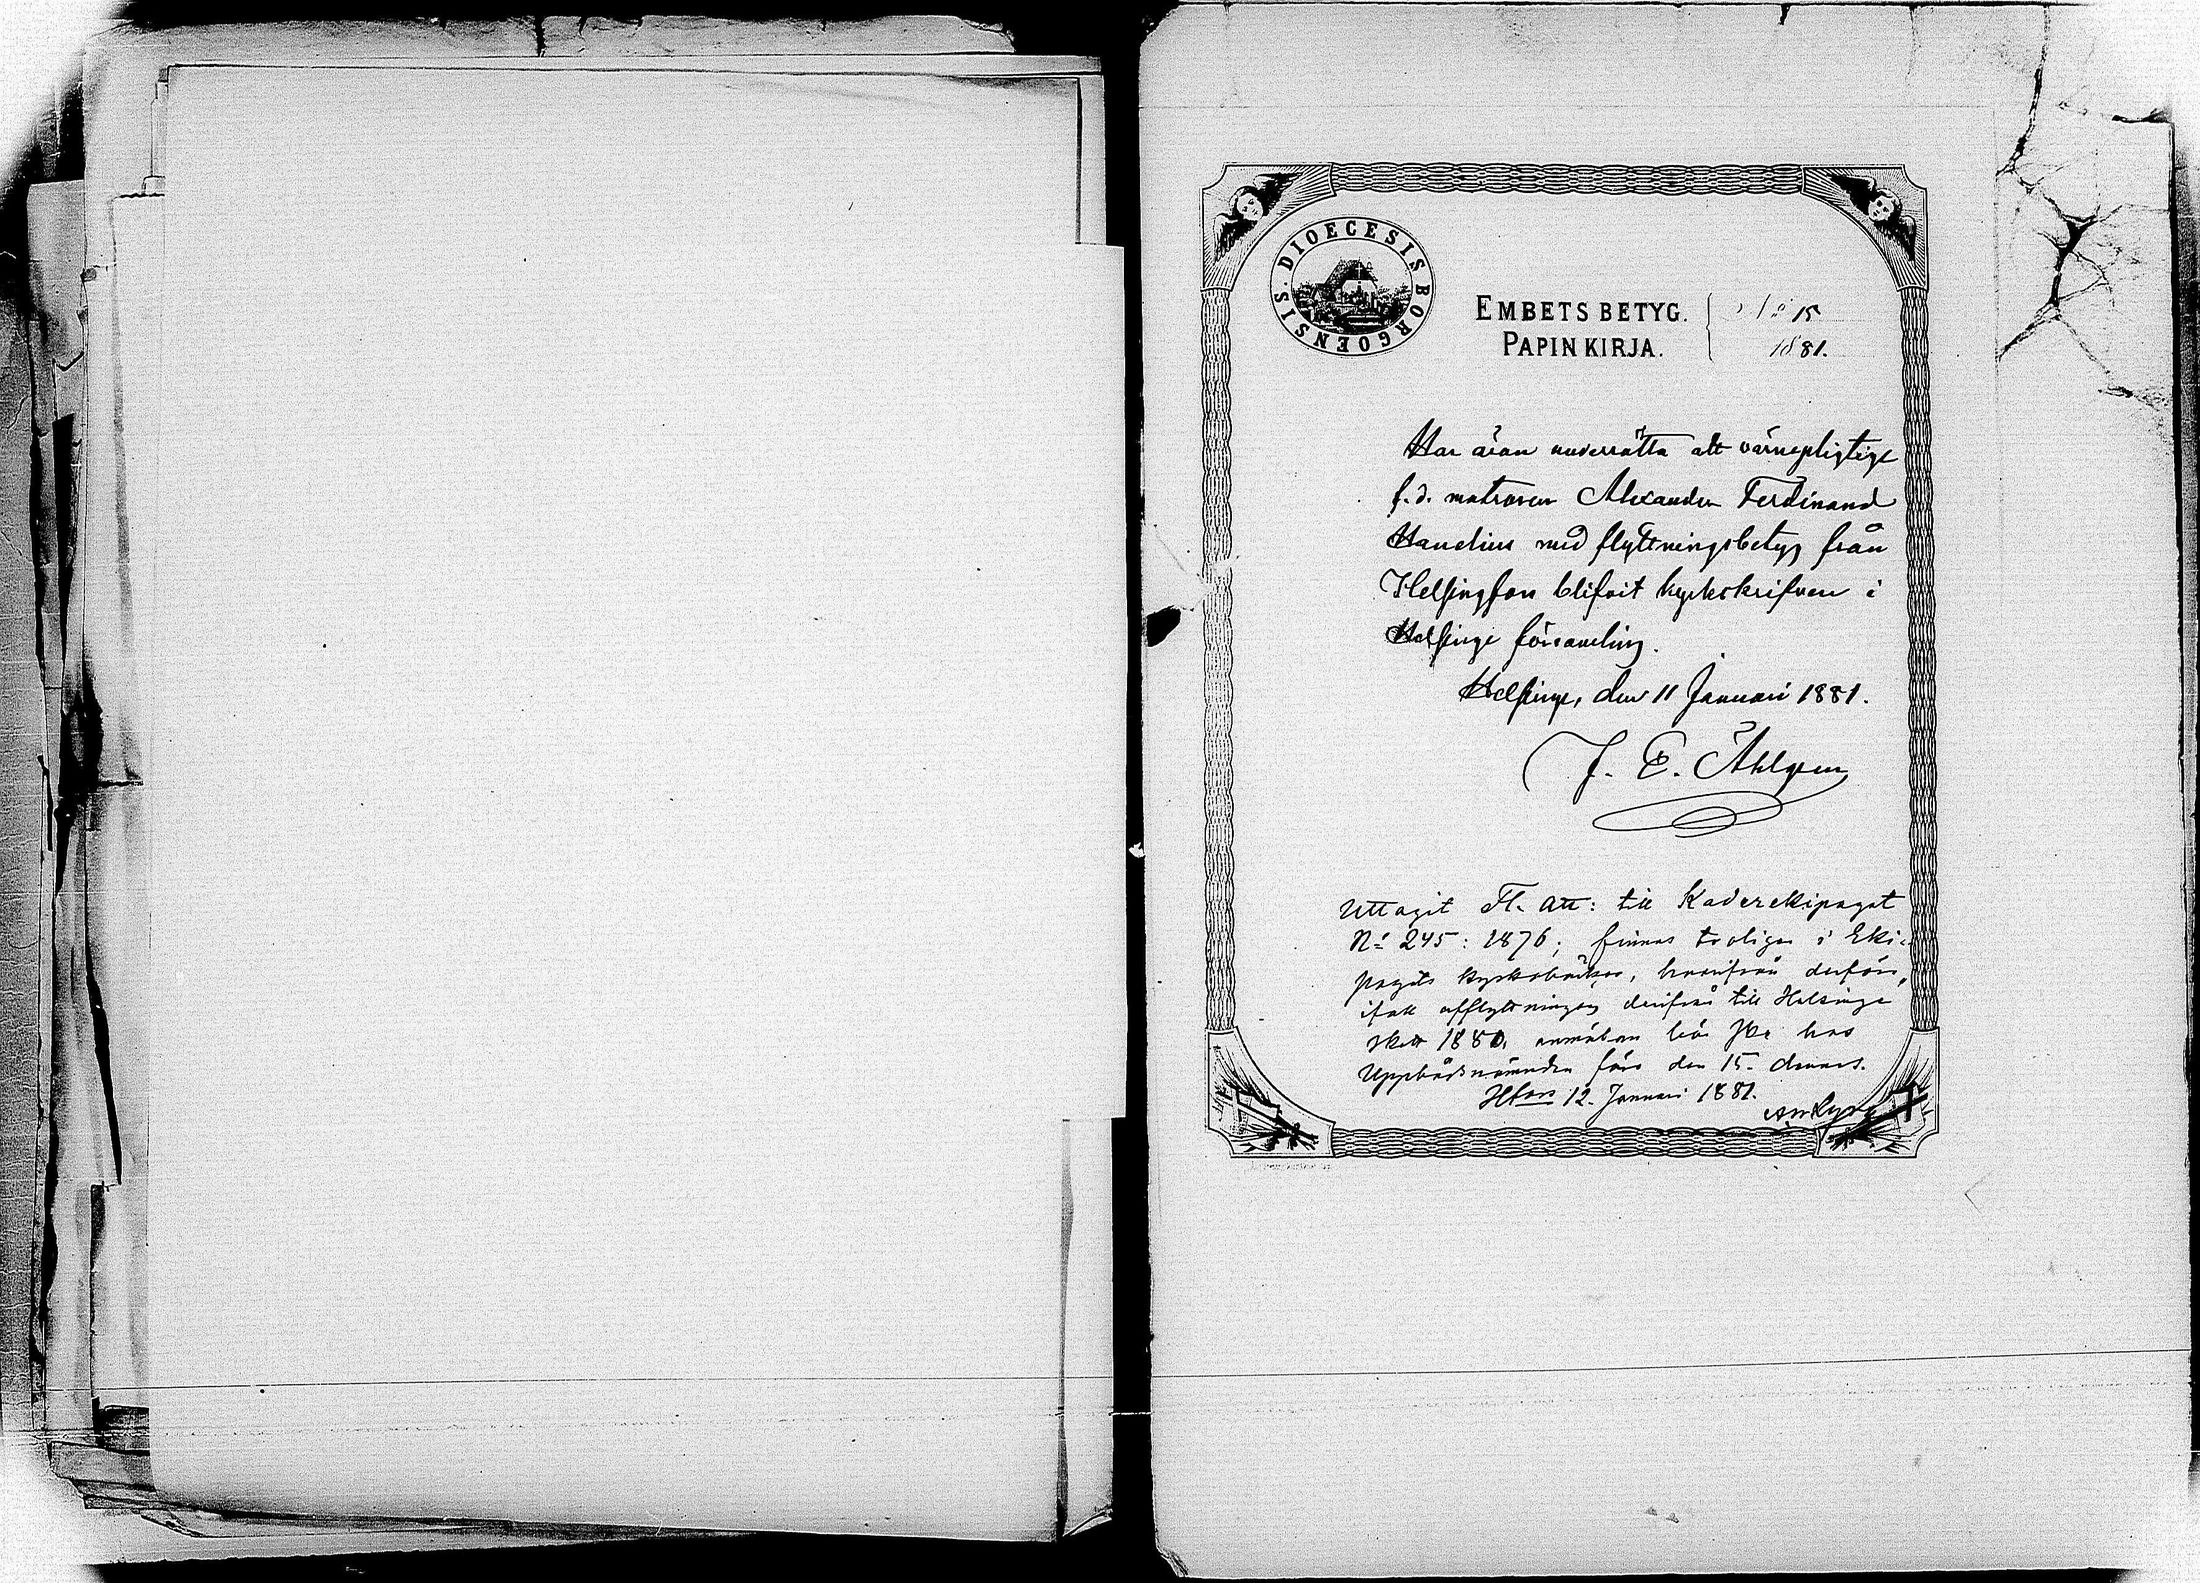 DIOECESIS BORGOENSIS.
EMBETS BETYG. № 15
PAPINKIRJA. 1881.
Har äran underrätta att värnepligtige
f. d. matrosen Alexander Ferdinand
med flyttningsbetyg från
Helsingfors blifvit kyrkoskrifven i
Helsinge församling.
Helsinge, den 11 Januari 1881.
J. E. Åhlgren
Uttagit Fl. Att: till Kaderekipaget
No 245: 1876; finnes troligen i Eki-
pagets kyrkoböcker, hvarifrån derför,
ifall afflyttningen derifrån till Helsinge
skett 1880, anmälan bör ske hos
Uppbådsnämnden före den 15. dennes.
Hfors 12. Januari 1881.